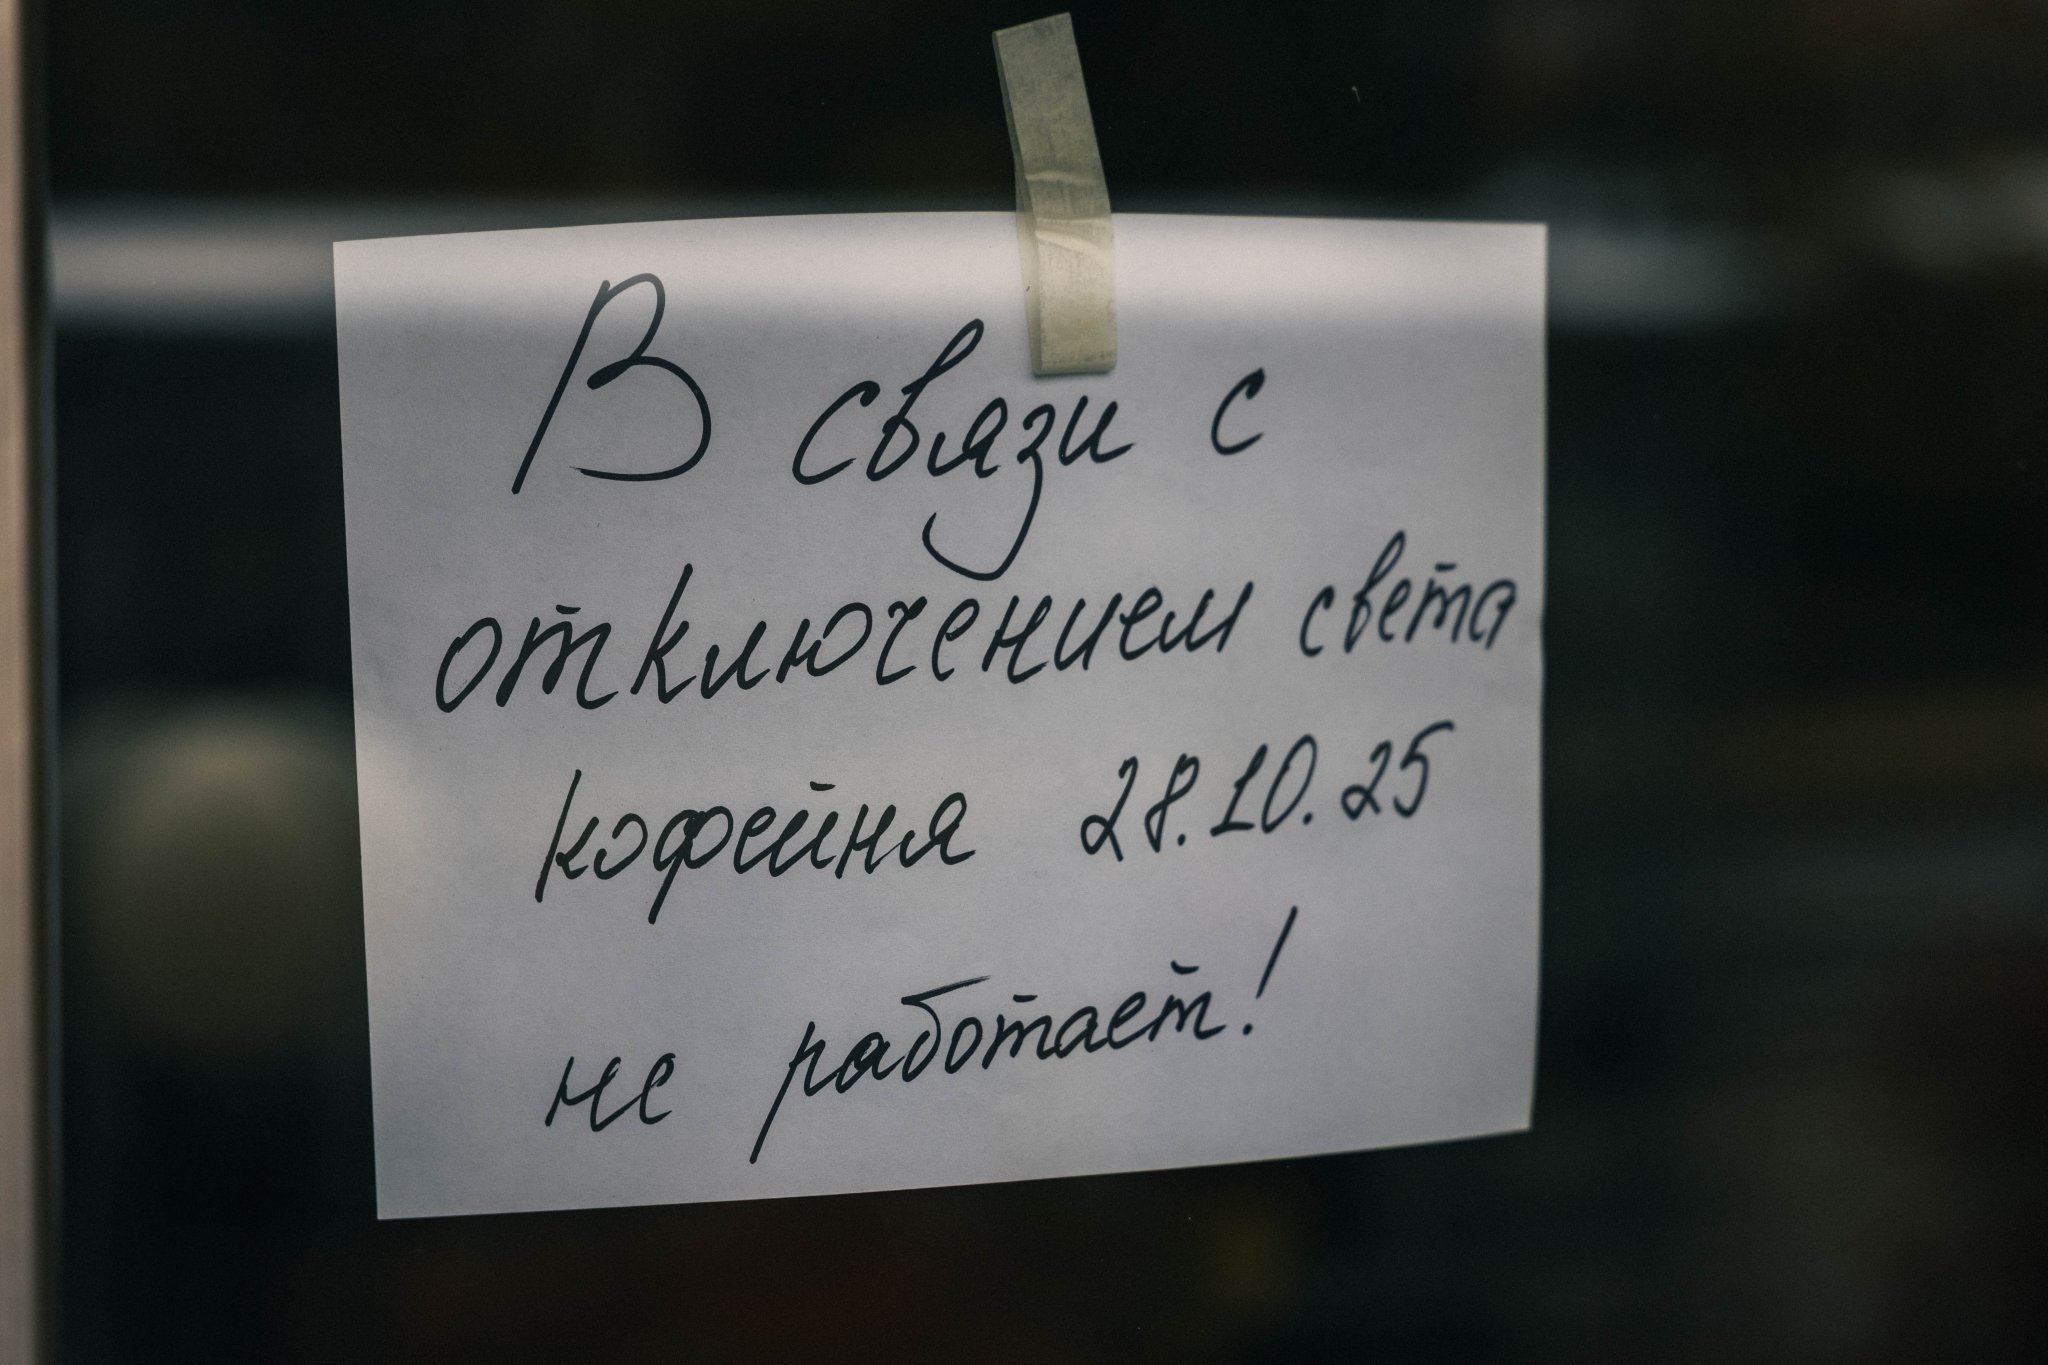 В связи с
отключением света
кофейня 28.10.25
не работает!